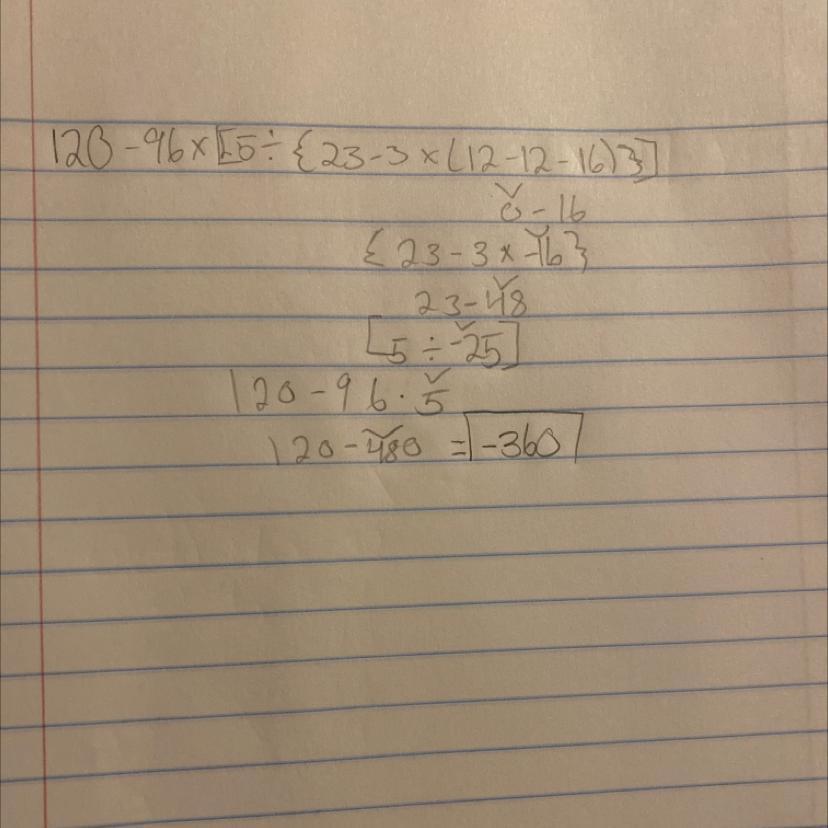 120 - 96 × [5 ÷ {23 - 3 × (12 - 12 - 16)}]
0 - 16
{23 - 3 × -16}
23 - 48
[5 ÷ -25]
120 - 96 · 5
120 - 480 = -360